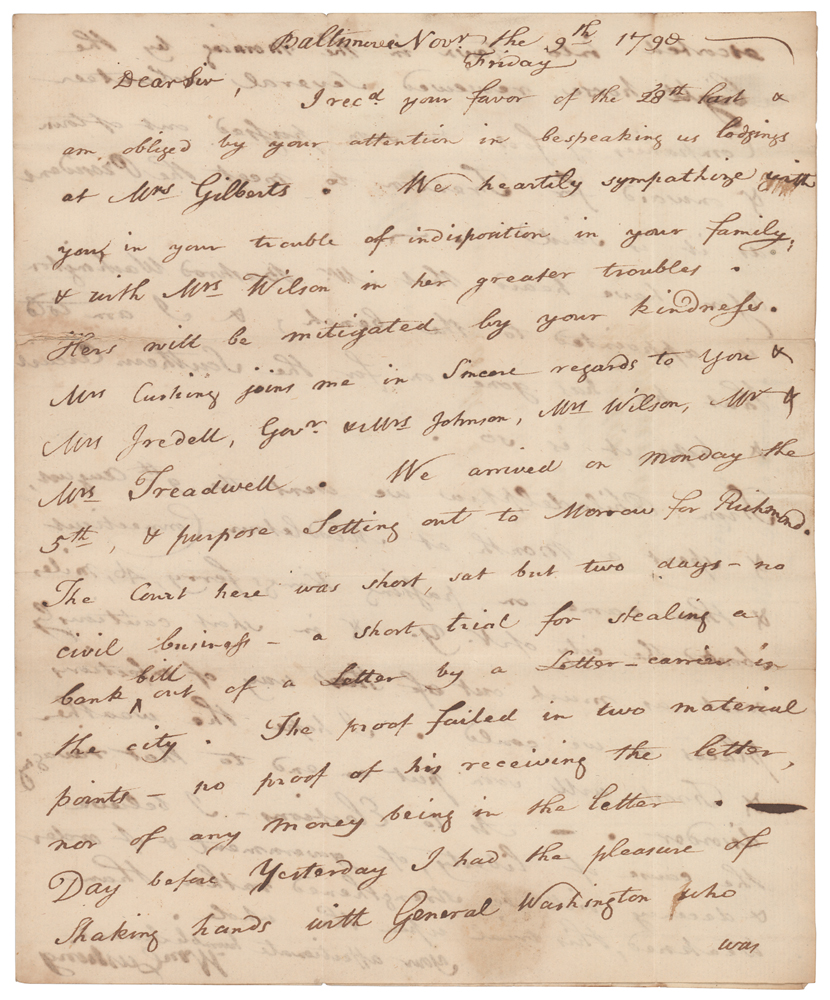 Baltimore Novr. the 9th 1798
Friday
Dear Sir,
I recd. your favor of the 28th last &
am obliged by your attention in bespeaking us lodgings
at Mrs Gilberts. We heartily sympathize with
you in your trouble of indisposition in your family,
& with Mrs Wilson in her greater troubles.
Hers will be mitigated by your kindness.
Mrs Cushing joins me in Sincere regards to you &
Mrs Iredell, Govr. & Mrs Johnson, Mrs Wilson, Mr &
Mrs Treadwell. We arrived on monday the
5th, & purpose Setting out to Morrow for Richmond.
The Court here was short, sat but two days – no
civil business – a short trial for stealing a
bank bill out of a Letter by a Letter-carrier in
the city. The proof failed in two material
points – no proof of his receiving the letter,
nor of any money being in the letter. —
Day before Yesterday I had the pleasure of
Shaking hands with General Washington who
was